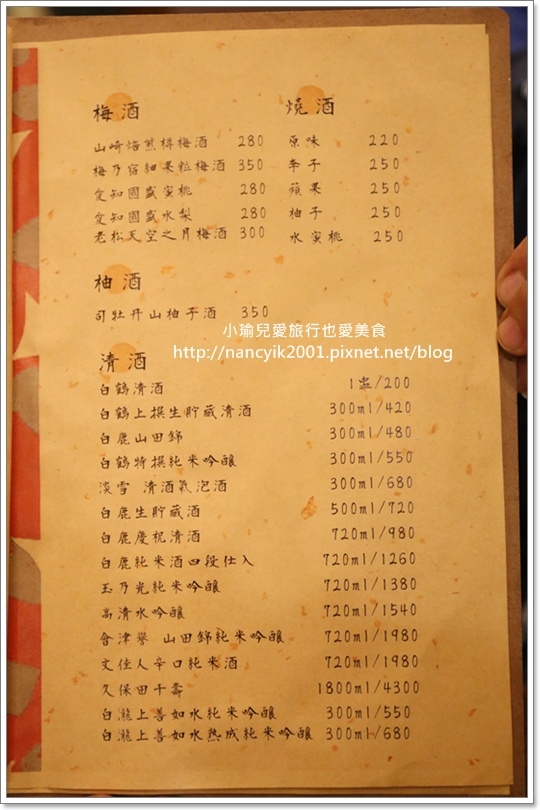 梅酒
山崎焙煎樽梅酒 280
梅乃宿細果粒梅酒 350
愛知國盛蜜桃 280
愛知國盛水梨 280
老松天空之月梅酒 300
燒酒
原味 220
李子 250
蘋果 250
柚子 250
水蜜桃 250
柚酒
司牡丹山柚子酒 350
小瑜兒愛旅行也愛美食
http://nancyik2001.pixnet.net/blog
清酒
白鶴清酒 1盅/200
白鶴上撰生貯藏清酒 300ml/420
白鹿山田錦 300ml/480
白鶴特撰純米吟釀 300ml/550
淡雪 清酒氣泡酒 300ml/680
白鹿生貯藏酒 500ml/720
白鹿慶祝清酒 720ml/980
白鹿純米酒四段仕入 720ml/1260
玉乃光純米吟釀 720ml/1380
高清水吟釀 720ml/1540
會津譽 山田錦純米吟釀 720ml/1980
文佳人辛口純米酒 720ml/1980
久保田千壽 1800ml/4300
白瀧上善如水純米吟釀 300ml/550
白瀧上善如水熟成純米吟釀 300ml/680